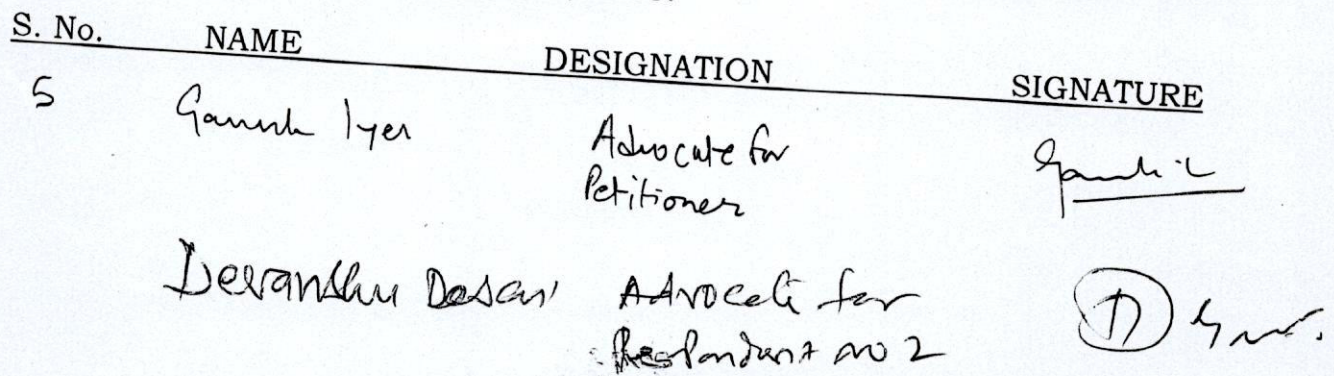 S. No. NAME DESIGNATION SIGNATURE
5 Ganesh Iyer Advocate for
Petitioner
Devanshu Desai Advocate for
Respondant no 2